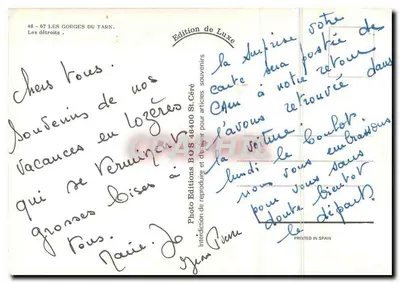 48 - 67 LES GORGES DU TARN.
Les détroits.
Edition de Luxe
Chers tous.
Souvenirs de nos
vacances en Lozère
qui se terminent
grosses bises à
tous.
Marie. Jo
Jean Pierre
Photo Editions BOS 46400 St.Céré
Interdiction de reproduire et d'utiliser pour articles souvenirs
la surprise votre
carte sera postée de
CAEN à notre retour
l'avons retrouvée dans
la voiture
lundi le boulot.
nous vous embrassons
pour vous sans
doute bientôt
le départ.
PRINTED IN SPAIN